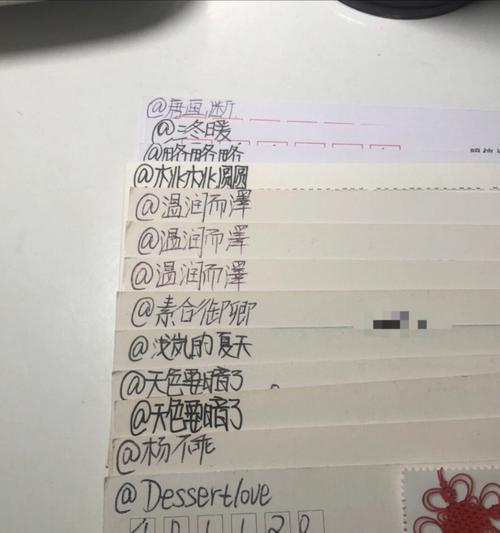 @再画、断
@三冬暖
@略略略
@桃桃圆圆
@温润而澤
@温润而澤
@温润而澤
@素合御卿
@浅岚的夏天
@天色要暗了
@天色要暗了
@杨不乖
@Dessertlove
401120